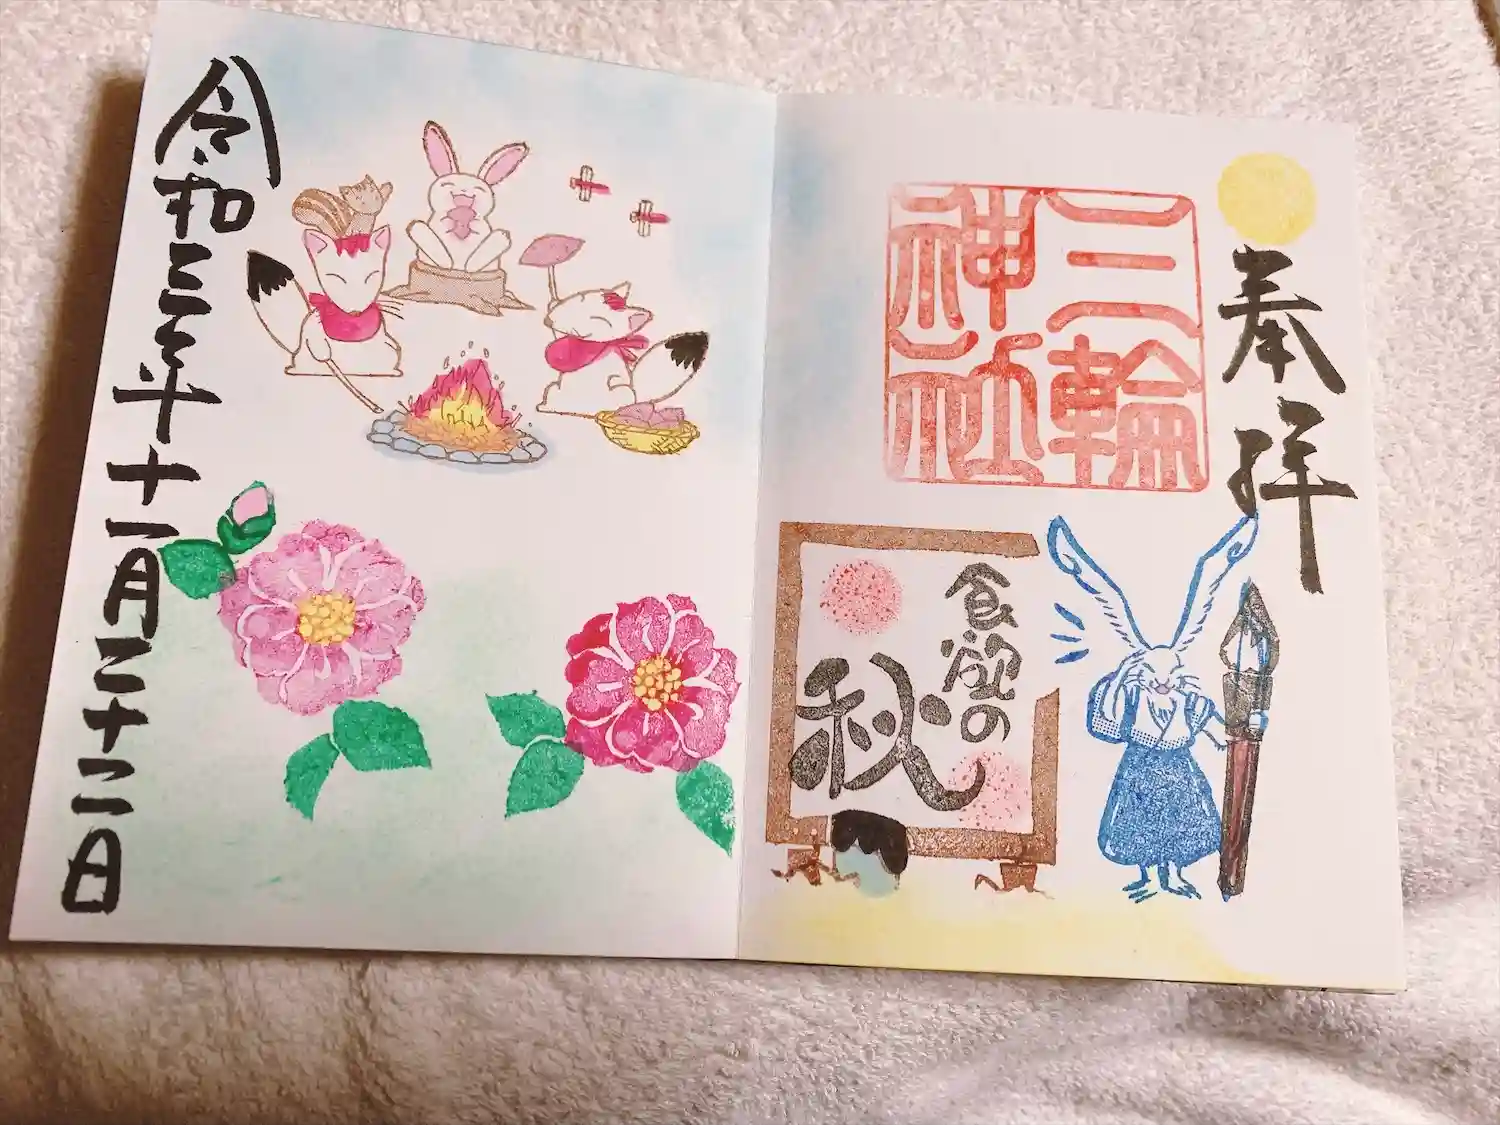 奉拝
三輪
神社
食欲の
秋
令和三年十一月二十二日